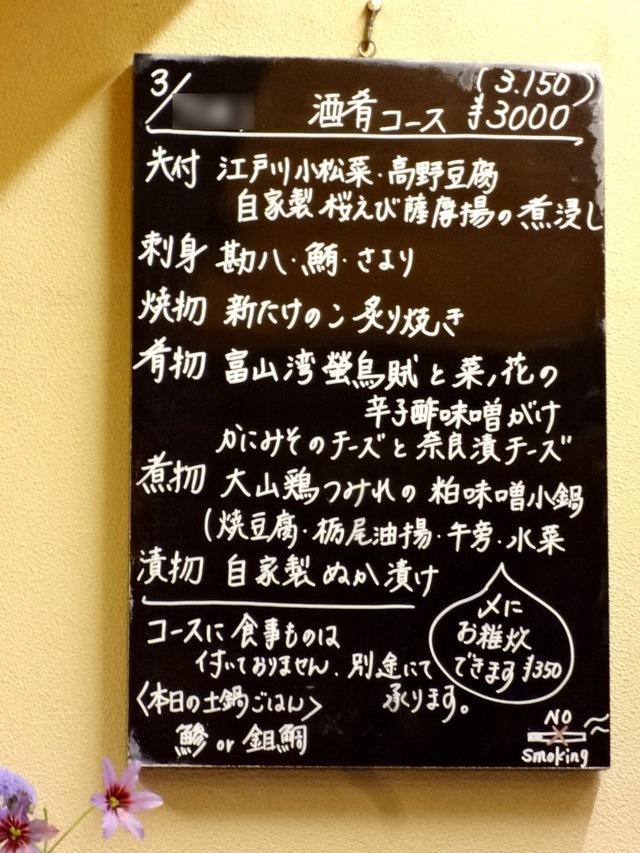 3/
(3.150)
酒肴コース ¥3000
先付 江戸川小松菜・高野豆腐
自家製桜えび薩摩揚の煮浸し
刺身 勘八・鮪・さより
焼物 新たけのこ炙り焼き
肴物 富山湾螢烏賊と菜ノ花の
辛子酢味噌がけ
かにみそのチーズと奈良漬チーズ
煮物 大山鶏つみれの粕味噌小鍋
(焼豆腐・栃尾油揚・午旁・水菜
漬物 自家製ぬか漬け
コースに食事ものは
付いておりません、別途にて
承ります。
〆に
お雑炊
できます ¥350
〈本日の土鍋ごはん〉
鯵 or 鉏鯛
NO
smoking